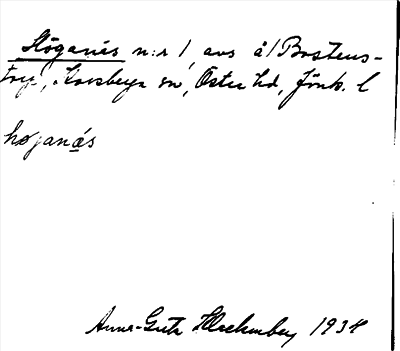 Höganäs n:r 1, avs å Bostens-
torp, Korsberga sn, Östra hd, Jönk. l
høganä̱s
Anna-Greta Hleckenberg 1934